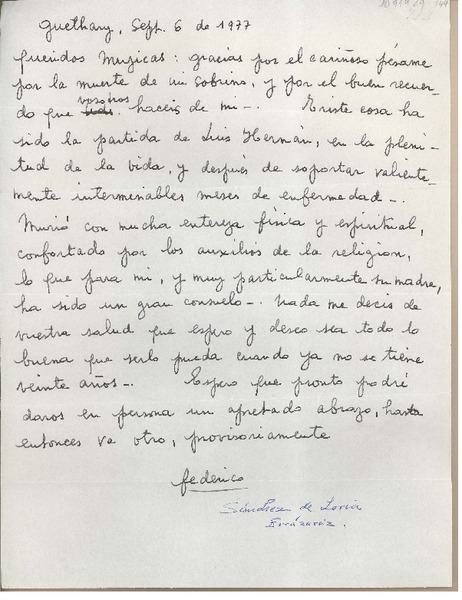 Guethary, Sept. 6 de 1977
Queridos Muzicas: gracias por el cariñoso pésame
por la muerte de mi sobrino, y por el buen recuer-
do que vosotros haceis de mi-. Triste cosa ha
sido la partida de Luis Hernán, en la pleni-
tud de la vida, y después de soportar valiente-
mente interminables meses de enfermedad-.
Murió con mucha entereza física y espiritual,
confortado por los auxilios de la religion,
lo que para mi, y muy particularmente su madre,
ha sido un gran consuelo-. Nada me decis de
vuestra salud que espero y deseo sea todo lo
buena que serlo pueda cuando ya no se tiene
veinte años-. Espero que pronto podré
daros en persona un apretado abrazo, hasta
entonces va otro, provisoriamente
Federico
Sánchez de Loria
Errázuriz.